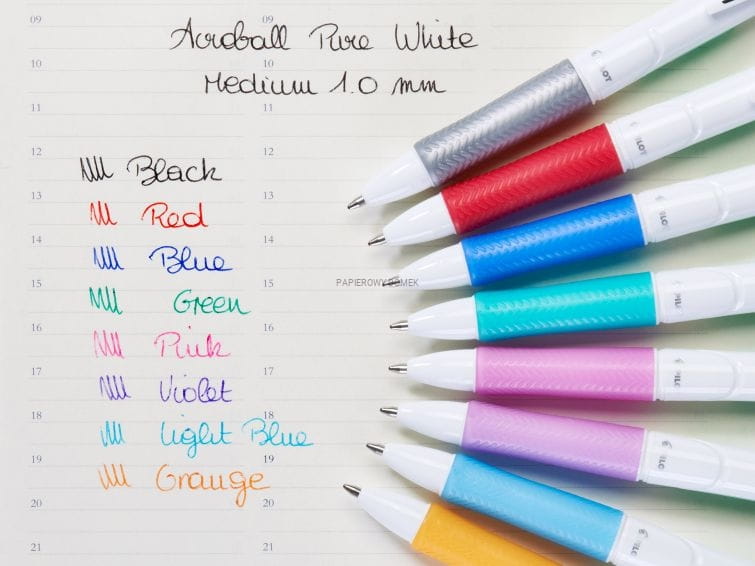 Acroball Pure White
Medium 1.0 mm
09 09
10 10
11 11
12 12
13 13
14 14
15 15
16 16
17 17
18 18
19 19
20 20
21 21
Black
Red
Blue
Green
Pink
Violet
Light Blue
Orange
PAPIEROWY DOMEK
PILOT
PILOT
PILOT
PILOT
PILOT
PILOT
PILOT